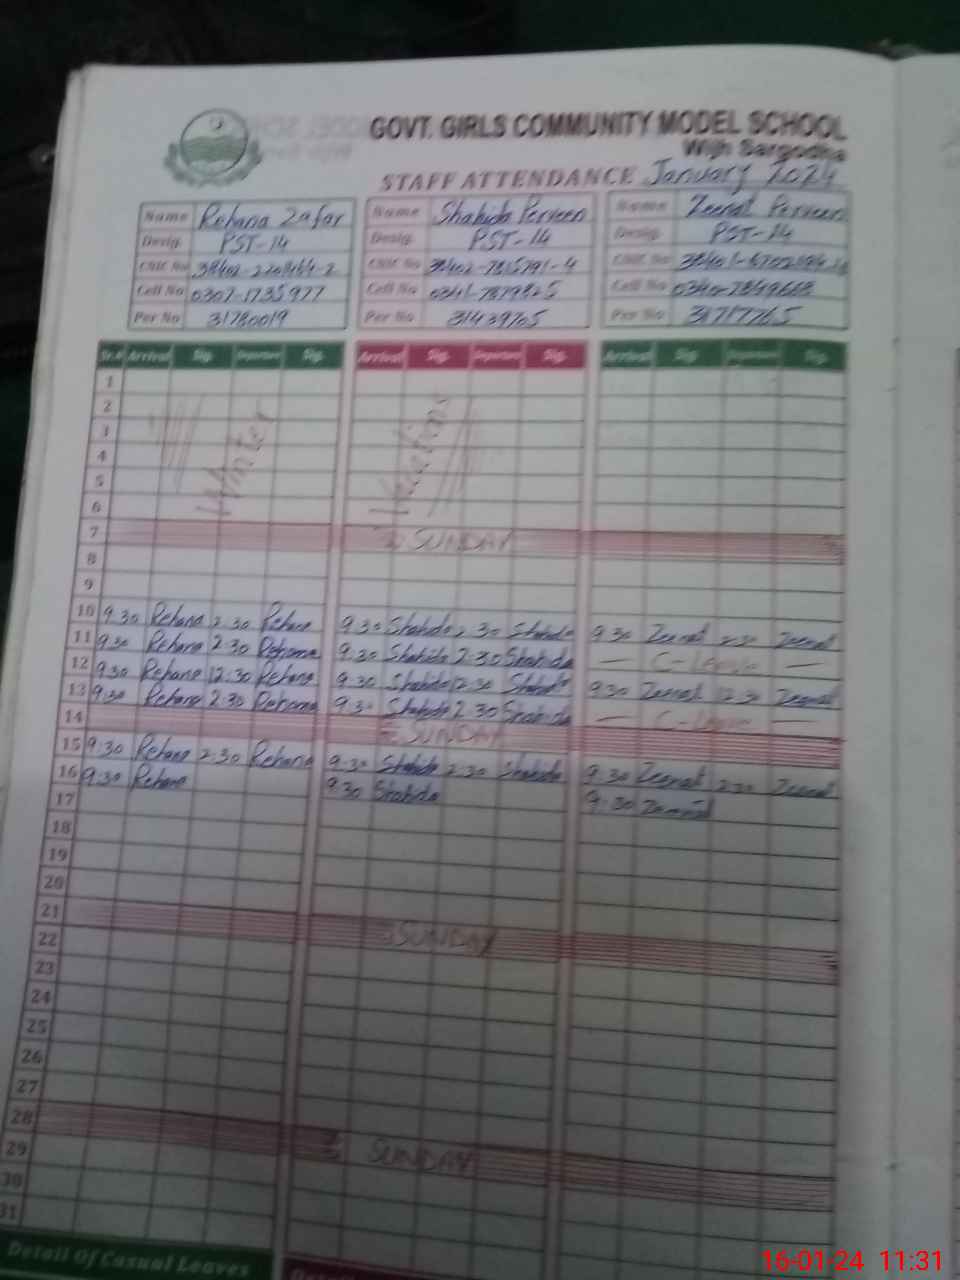 GOVT. GIRLS COMMUNITY MODEL SCHOOL
Wijh Sargodha
STAFF ATTENDANCE January 2024
Name Rehana Zafar Name Shahida Perveen Name Zeenat Perveen
Desig. PST-14 Desig. PST-14 Desig. PST-14
CNIC No CNIC No 38402-7815791-4 CNIC No
Cell No 0307-1735977 Cell No 0341-7879825 Cell No 0340-7849668
Per No 31780019 Per No 31439705 Per No 31717765
Sr.# Arrival Sig. Departure Sig. Arrival Sig. Departure Sig. Arrival Sig. Departure Sig.
1
2
3
4 Winter Vacations
5
6
7 SUNDAY
8
9
10 9.30 Rehana 2.30 Rehana 9.30 Shahida 2.30 Shahida 9.30 Zeenat 2.30 Zeenat
11 9.30 Rehana 2.30 Rehana 9.30 Shahida 2.30 Shahida — C-Leave —
12 9.30 Rehana 12.30 Rehana 9.30 Shahida 12.30 Shahida 9.30 Zeenat 12.30 Zeenat
13 9.30 Rehana 2.30 Rehana 9.30 Shahida 2.30 Shahida — C-Leave —
14 SUNDAY
15 9:30 Rehana 2:30 Rehana 9.30 Shahida 2.30 Shahida 9.30 Zeenat 2.30 Zeenat
16 9:30 Rehana 9.30 Shahida 9:30 Zeenat
17
18
19
20
21 SUNDAY
22
23
24
25
26
27
28 SUNDAY
29
30
31
Detail Of Casual Leaves
16-01-24 11:31